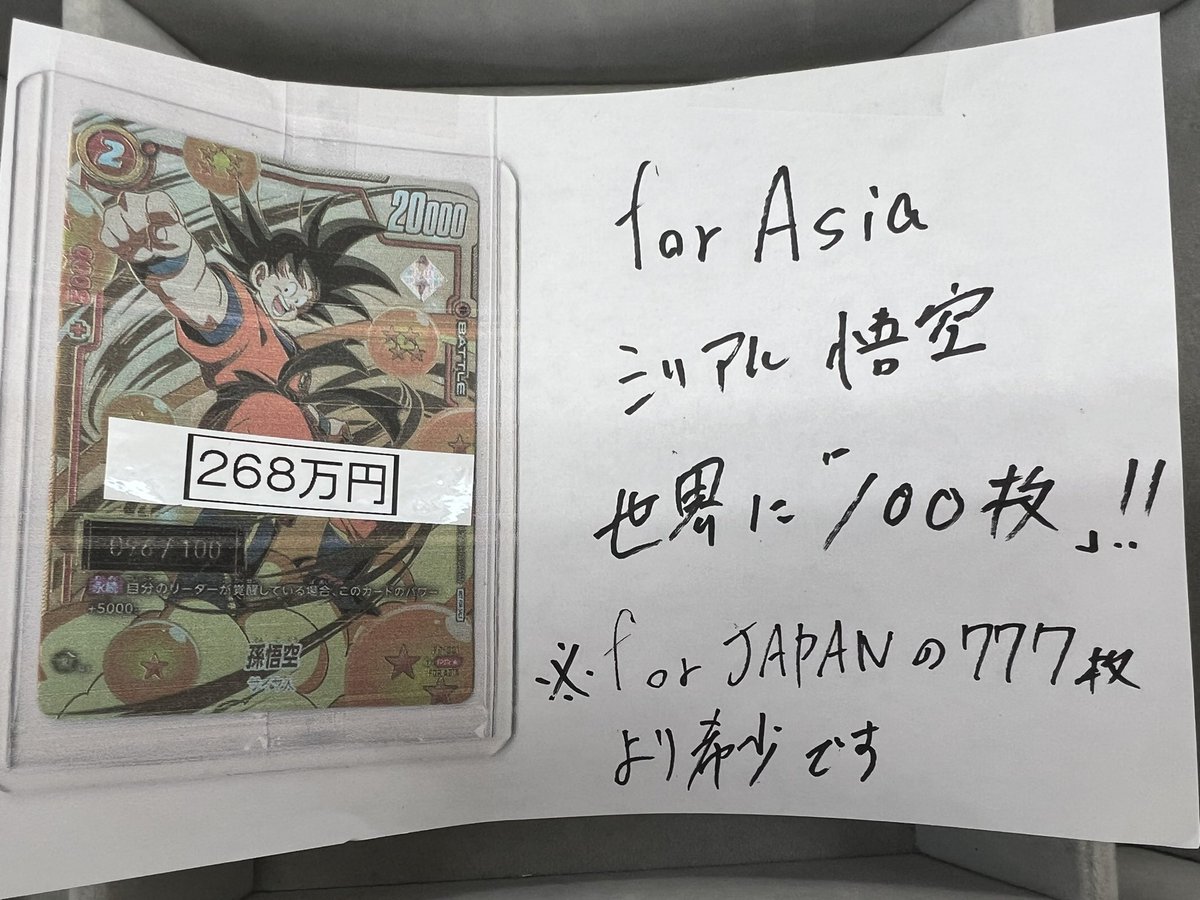 2
20000
BATTLE
268万円
096/100
永続 自分のリーダーが覚醒している場合、このカードのパワー
+5000。
孫悟空
サイヤ人
for Asia
シリアル 悟空
世界に「100枚」!!
※for JAPANの777枚
より希少です